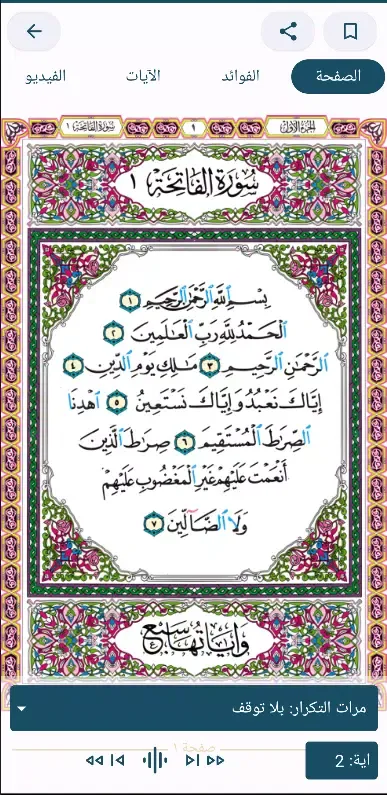 الصفحة
الفوائد
الآيات
الفيديو
الجزء الأول
١
سورة الفاتحة ١
سُورَةُ الفَاتِحَةِ ١
بِسْمِ اللَّهِ الرَّحْمَٰنِ الرَّحِيمِ ١
الْحَمْدُ لِلَّهِ رَبِّ الْعَالَمِينَ ٢
الرَّحْمَٰنِ الرَّحِيمِ ٣ مَالِكِ يَوْمِ الدِّينِ ٤
إِيَّاكَ نَعْبُدُ وَإِيَّاكَ نَسْتَعِينُ ٥ اهْدِنَا
الصِّرَاطَ الْمُسْتَقِيمَ ٦ صِرَاطَ الَّذِينَ
أَنْعَمْتَ عَلَيْهِمْ غَيْرِ الْمَغْضُوبِ عَلَيْهِمْ
وَلَا الضَّالِّينَ ٧
وَآيَاتُهَا سَبْعٌ
مرات التكرار: بلا توقف
صفحة ١
اية: 2